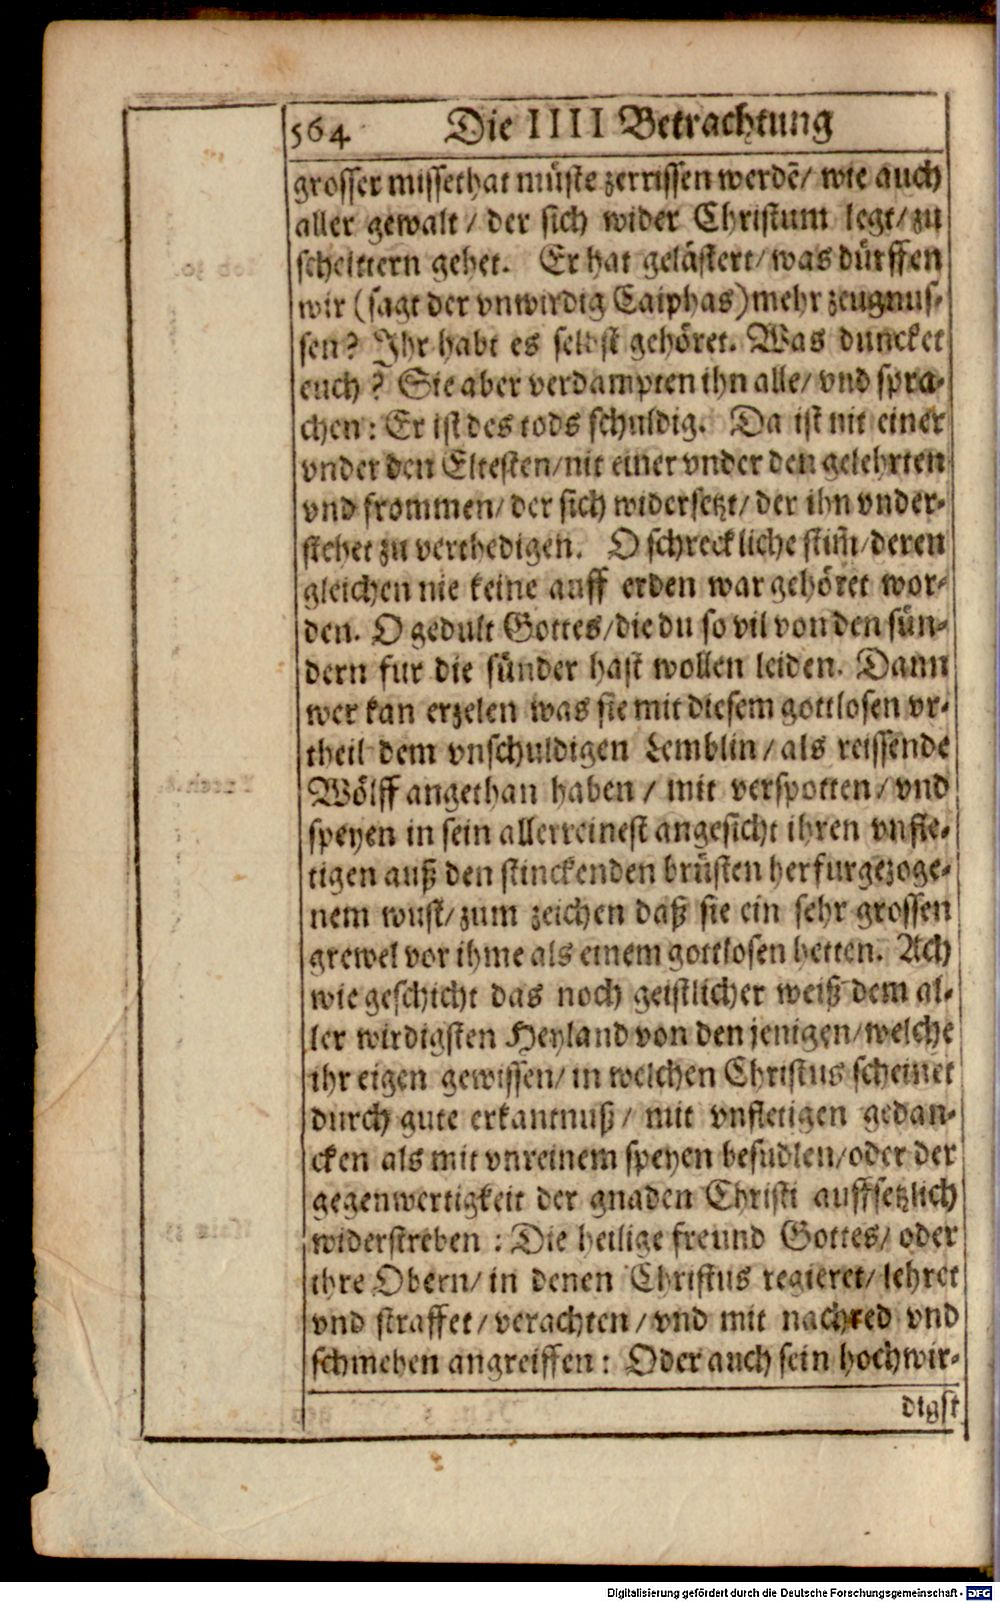 564 Die IIII Betrachtung
grosser missethat müste zerrissen werdē/ wie auch
aller gewalt / der sich wider Christum legt/ zu
scheittern gehet. Er hat gelästert/ was dürffen
wir (sagt der vnwirdig Caiphas) mehr zeugnus-
sen? Ihr habt es selbst gehöret. Was duncket
euch? Sie aber verdampten ihn alle/ vnd spra-
chen: Er ist des tods schuldig. Da ist nit einer
vnder den Eltesten/ nit einer vnder den gelehrten
vnd frommen/ der sich widersetzt/ der ihn vnder-
stehet zu verthedigen. O schreckliche stim̄/ deren
gleichen nie keine auff erden war gehöret wor-
den. O gedult Gottes/ die du so vil von den sün-
dern fur die sünder hast wollen leiden. Dann
wer kan erzelen was sie mit diesem gottlosen vr-
theil dem vnschuldigen Lemblin / als reissende
Wölff angethan haben / mit verspotten / vnd
speyen in sein allerreinest angesicht ihren vnfle-
tigen auß den stinckenden brüsten herfurgezoge-
nem wust/ zum zeichen daß sie ein sehr grossen
grewel vor ihme als einem gottlosen hetten. Ach
wie geschicht das noch geistlicher weiß dem al-
ler wirdigsten Heyland von den jenigen/ welche
ihr eigen gewissen/ in welchen Christus scheinet
durch gute erkantnuß / mit vnfletigen gedan-
cken als mit vnreinem speyen besudlen/ oder der
gegenwertigkeit der gnaden Christi auffsetzlich
widerstreben : Die heilige freund Gottes/ oder
ihre Obern/ in denen Christus regieret/ lehret
vnd straffet / verachten / vnd mit nachred vnd
schmehen angreiffen: Oder auch sein hochwir-
digst
Digitalisierung gefördert durch die Deutsche Forschungsgemeinschaft - DFG